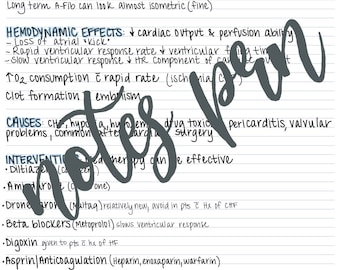 Long term A-Fib can look almost isometric (fine)
HEMODYNAMIC EFFECTS: ↓ cardiac output & perfusion ability
- Loss of atrial "kick"
- Rapid ventricular response rate ↓ ventricular filling time
- Slow ventricular response ↓ HR component of cardiac output
↑O₂ consumption c̄ rapid rate (ischemia,
Clot formation embolism
CAUSES: hypoxia, drug toxicity, pericarditis, valvular
problems, common after cardiac surgery
INTERVENTIONS: Med therapy can be effective
• Diltiazem
• Amiodarone
• Dronedarone (Multaq) relatively new, avoid in pts c̄ Hx of CHF
• Beta blockers (Metoprolol) slows ventricular response
• Digoxin given to pts c̄ Hx of HF
• Asprin/Anticoagulation (Heparin, enoxaparin, warfarin)
notes prn